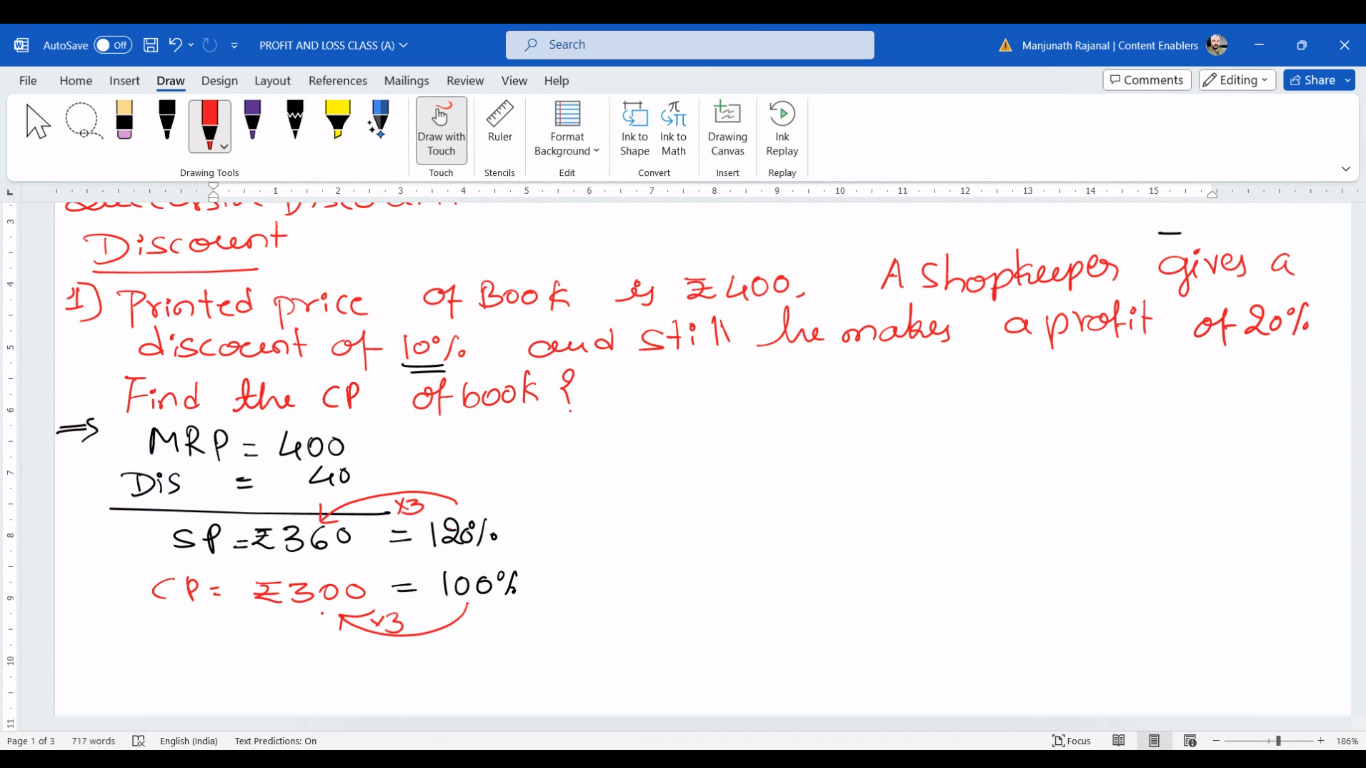 AutoSave Off PROFIT AND LOSS CLASS (A) Search Manjunath Rajanal | Content Enablers
File Home Insert Draw Design Layout References Mailings Review View Help Comments Editing Share
Draw with Touch Ruler Format Background Ink to Shape Ink to Math Drawing Canvas Ink Replay
Drawing Tools Touch Stencils Edit Convert Insert Replay
1 2 3 4 5 6 7 8 9 10 11 12 13 14 15
Discount
1) Printed price of Book is ₹400. A shopkeeper gives a
discount of 10% and still he makes a profit of 20%
Find the CP of book?
⇒ MRP = 400
Dis = 40
×3
SP = ₹360 = 120%
CP = ₹300 = 100%
×3
3
4
5
6
7
8
9
10
11
Page 1 of 3 717 words English (India) Text Predictions: On Focus 186%